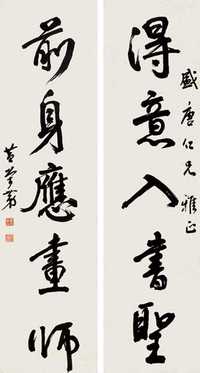 盛唐仁兄雅正
得意入書聖
前身應畫師
黄